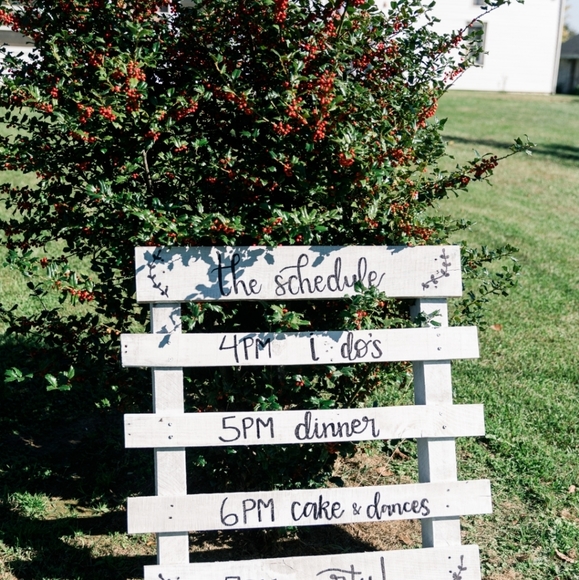 the schedule
4PM I do's
5PM dinner
6PM cake & dances